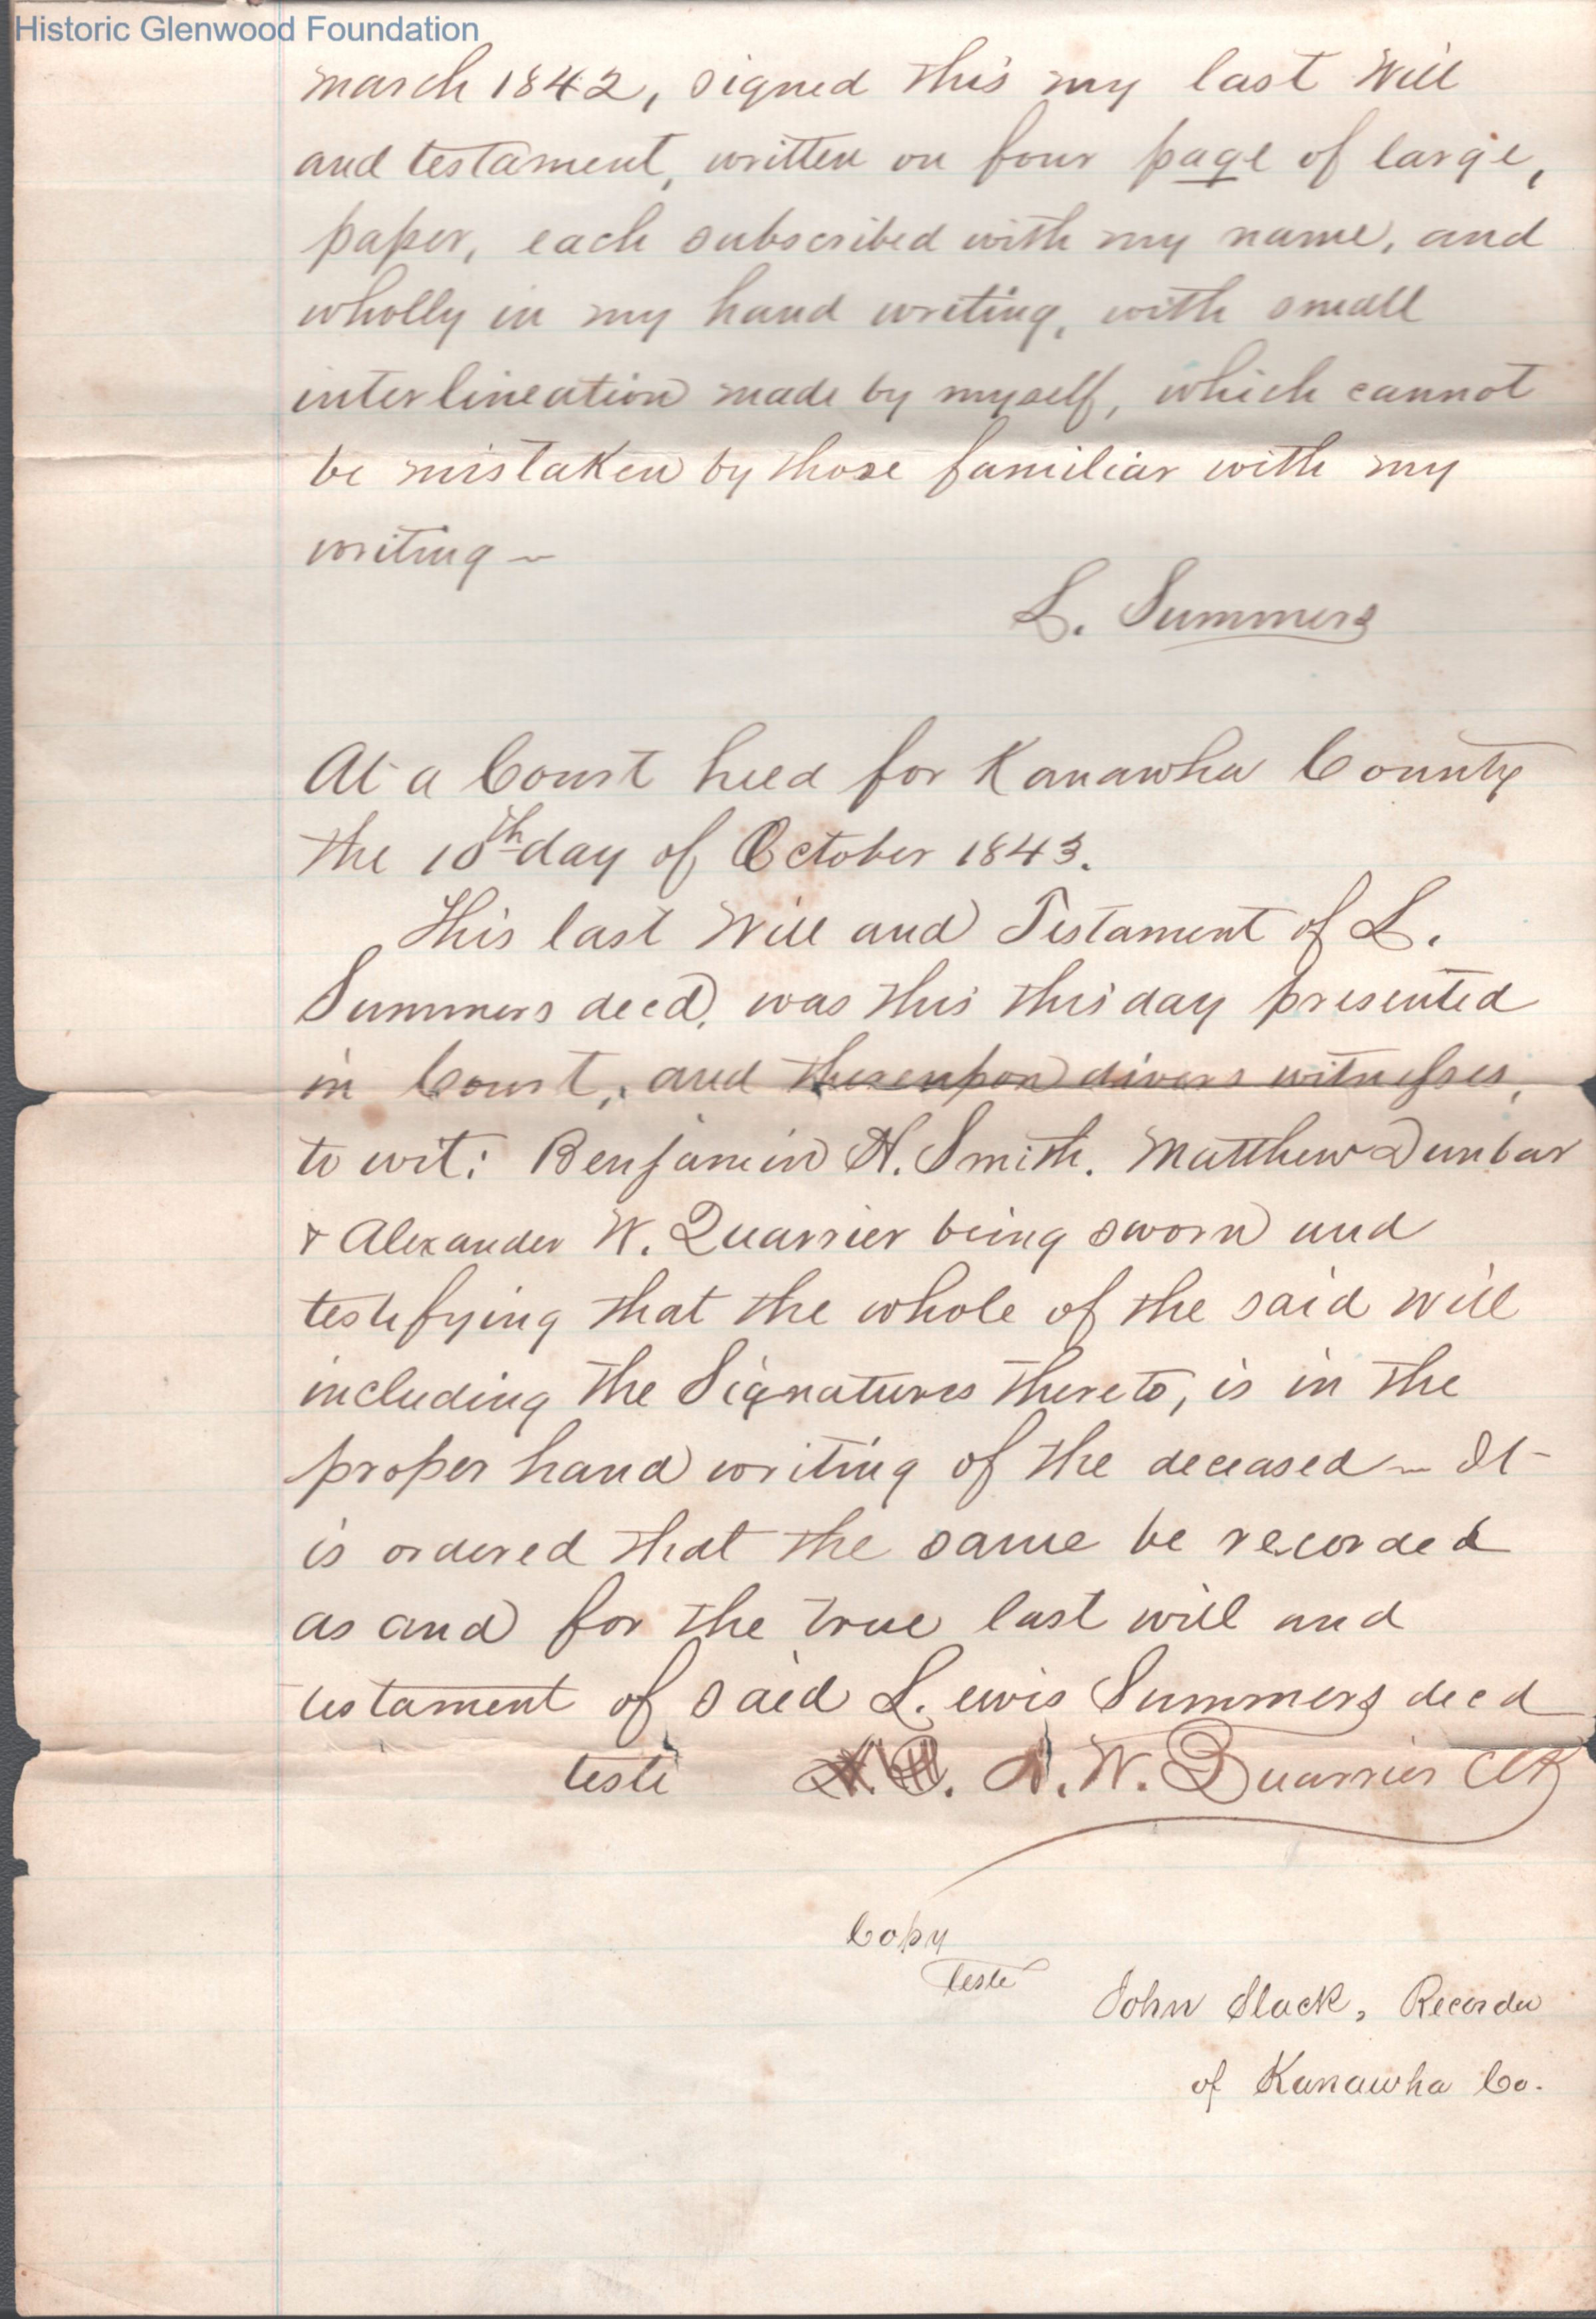 Historic Glenwood Foundation
March 1842, signed this my last Will
and testament, written on four page of large,
paper, each subscribed with my name, and
wholly in my hand writing, with small
interlineation made by myself, which cannot
be mistaken by those familiar with my
writing ~
L. Summers
At a Court held for Kanawha County
the 10th day of October 1843.
This last Will and Testament of L.
Summers decd, was this this day presented
in Court, and thereupon divers witnesses,
to wit: Benjamin H. Smith. Matthew Dunbar
& Alexander W. Quarrier being sworn and
testifying that the whole of the said will
including the Signatures thereto, is in the
proper hand writing of the deceased ~ It
is ordered that the same be recorded
as and for the true last will and
testament of said L. ewis Summers decd
teste A. W. Quarrier Clk
Copy
teste
John Slack, Recorder
of Kanawha Co.